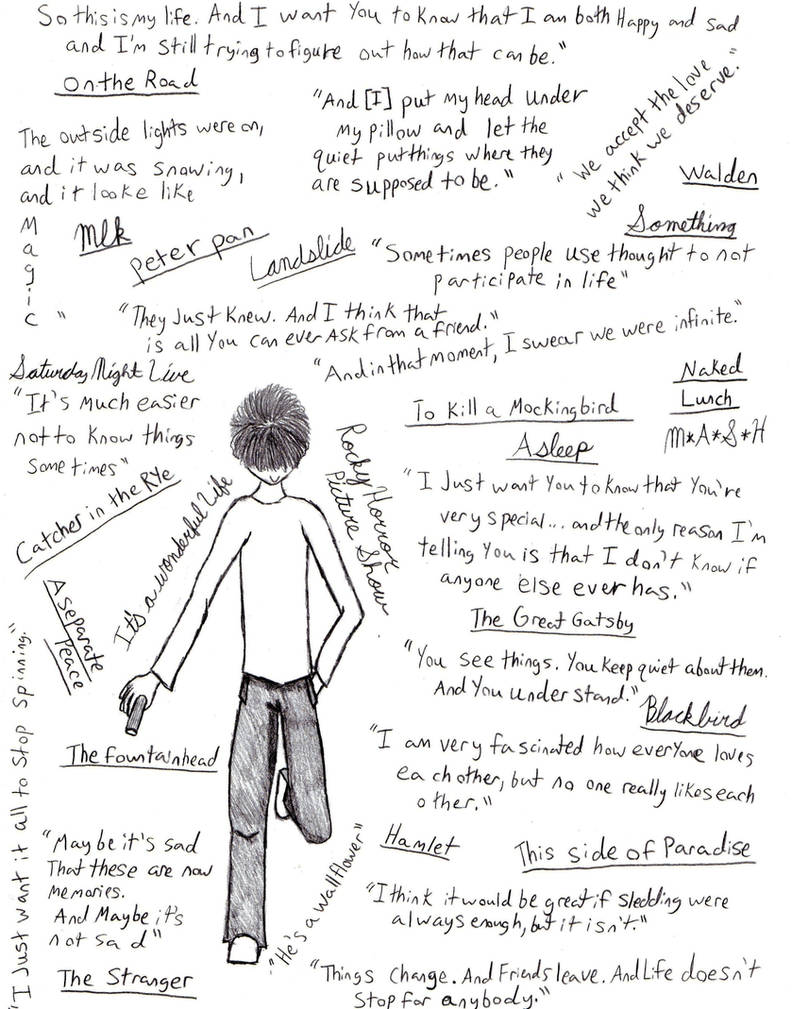 So this is my life. And I want You to know that I am both Happy and sad
and I'm still trying to figure out how that can be."
On the Road
"And [I] put my head under
my pillow and let the
quiet put things where they
are supposed to be."
"We accept the love
we think we deserve."
The outside lights were on,
and it was snowing,
and it looke like
Magic"
Walden
Mlk
Peter pan
Landslide
Something
"Sometimes people use thought to not
participate in life"
"They Just Knew. And I think that
is all You can ever Ask from a friend."
"And in that moment, I swear we were infinite."
Saturday Night Live
"It's much easier
not to know things
sometimes"
Naked
Lunch
To Kill a Mockingbird
M*A*S*H
Asleep
Catcher in the Rye
It's a wonderful Life
Rocky Horror
Picture Show.
"I Just want You to know that You're
very special... and the only reason I'm
telling You is that I don't know if
anyone else ever has."
A separate
Peace
The Great Gatsby
"You see things. You keep quiet about them.
And You understand."
Blackbird
"I Just want it all to Stop Spinning."
The Fountainhead
"I am very fascinated how everyone loves
each other, but no one really likes each
other."
Hamlet
This side of Paradise
"Maybe it's sad
That these are now
memories.
And Maybe it's
not sad"
"He's a wallflower"
"I think it would be great if sledding were
always enough, but it isn't."
The Stranger
"Things change. And Friends leave. And Life doesn't
Stop for anybody."